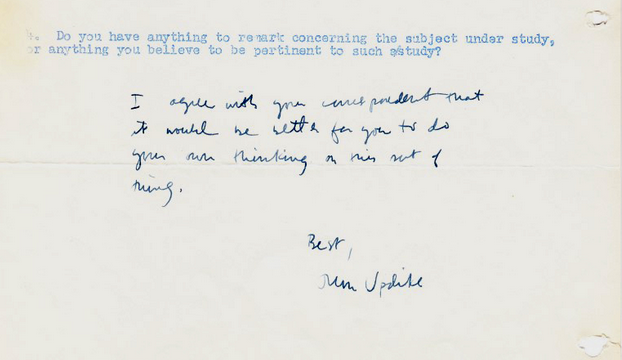 4. Do you have anything to remark concerning the subject under study,
or anything you believe to be pertinent to such study?
I agree with your correspondent that
it would be better for you to do
your own thinking on this sort of
thing.
Best,
John Updike